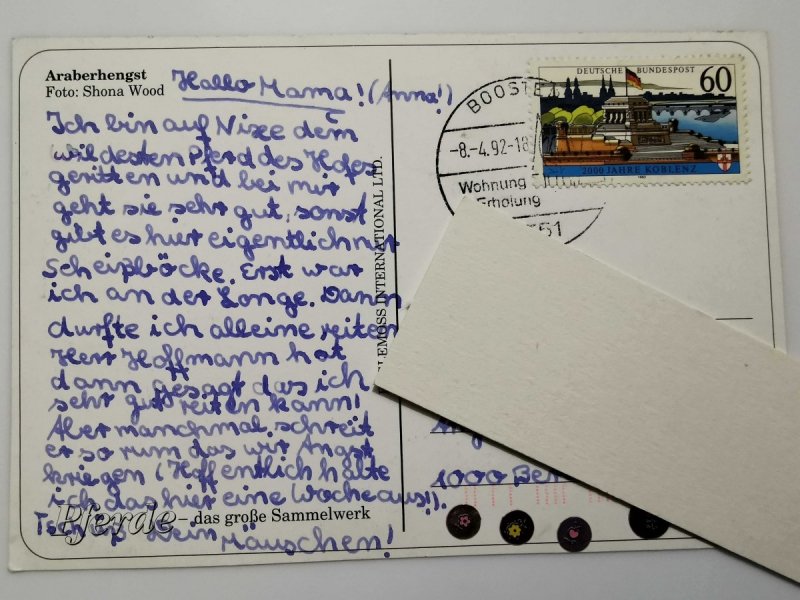 Araberhengst
Foto: Shona Wood
Hallo Mama! (Anna!)
Ich bin auf Nixe dem
wildesten Pferd des Hofes
geritten und bei mir
geht sie sehr gut, sonst
gibt es hier eigentlich nur
Scheißböcke. Erst war
ich an der Longe. Dann
durfte ich alleine reiten
Herr Hoffmann hat
dann gesagt das ich
sehr gut reiten kann!
Aber manchmal schreit
er so rum das wir Angst
kriegen (Hoffentlich halte
ich das hier eine Woche aus!).
Pferde – das große Sammelwerk
Tschüß Dein
Mäuschen!
INTERNATIONAL LTD.
BOOSTE
-8.-4.92-18
Wohnung
Erholung
51
DEUTSCHE BUNDESPOST
60
2000 JAHRE KOBLENZ
1000 Be